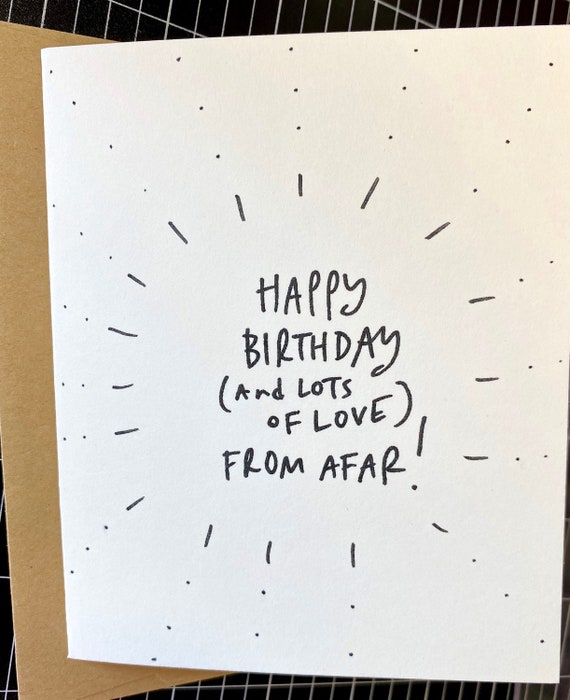 HAPPY
BIRTHDAY
(And LOTS
OF LOVE)
FROM AFAR!